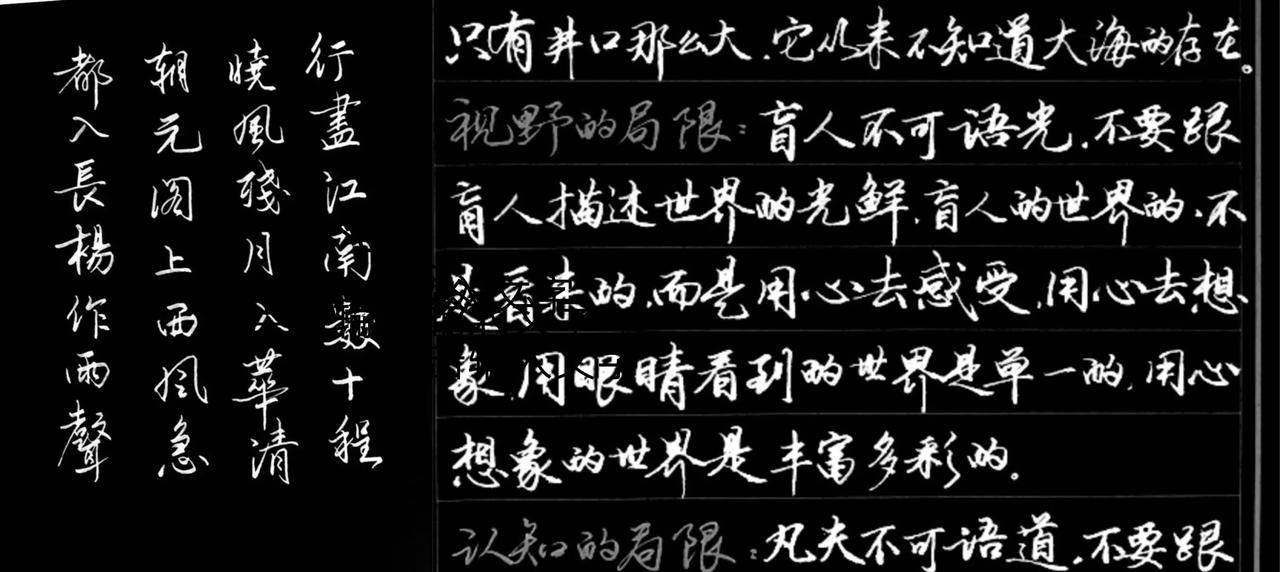 行盡江南數十程
曉風殘月入華清
朝元閣上西風急
都入長楊作雨聲
只有井口那么大,它从来不知道大海的存在。
视野的局限:盲人不可语光,不要跟
盲人描述世界的光鲜,盲人的世界的,不
是看来的,而是用心去感受,用心去想
象,用眼睛看到的世界是单一的,用心
想象的世界是丰富多彩的。
认知的局限:丸夫不可语道,不要跟